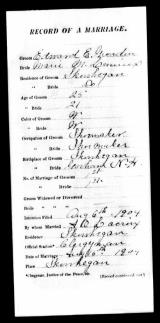 RECORD OF A MARRIAGE.
Groom Edward E.
Bride Marie M.
Residence of Groom Skowhegan
" Bride Do
Age of Groom 25
" Bride 21
Color of Groom W
" Bride W
Occupation of Groom Shomaker
" Bride Showorker
Birthplace of Groom Skowhegan
" Bride N.H.
No. of Marriage of Groom 1st
" Bride 1st
Groom Widowed or Divorced
Bride " " "
Intention Filed Aug 6th 1907
By whom Married
Residence Skowhegan
Official Station* Clergyman
Date of Marriage 1907
Place Skowhegan
*Clergyman, Justice of the Peace, etc.